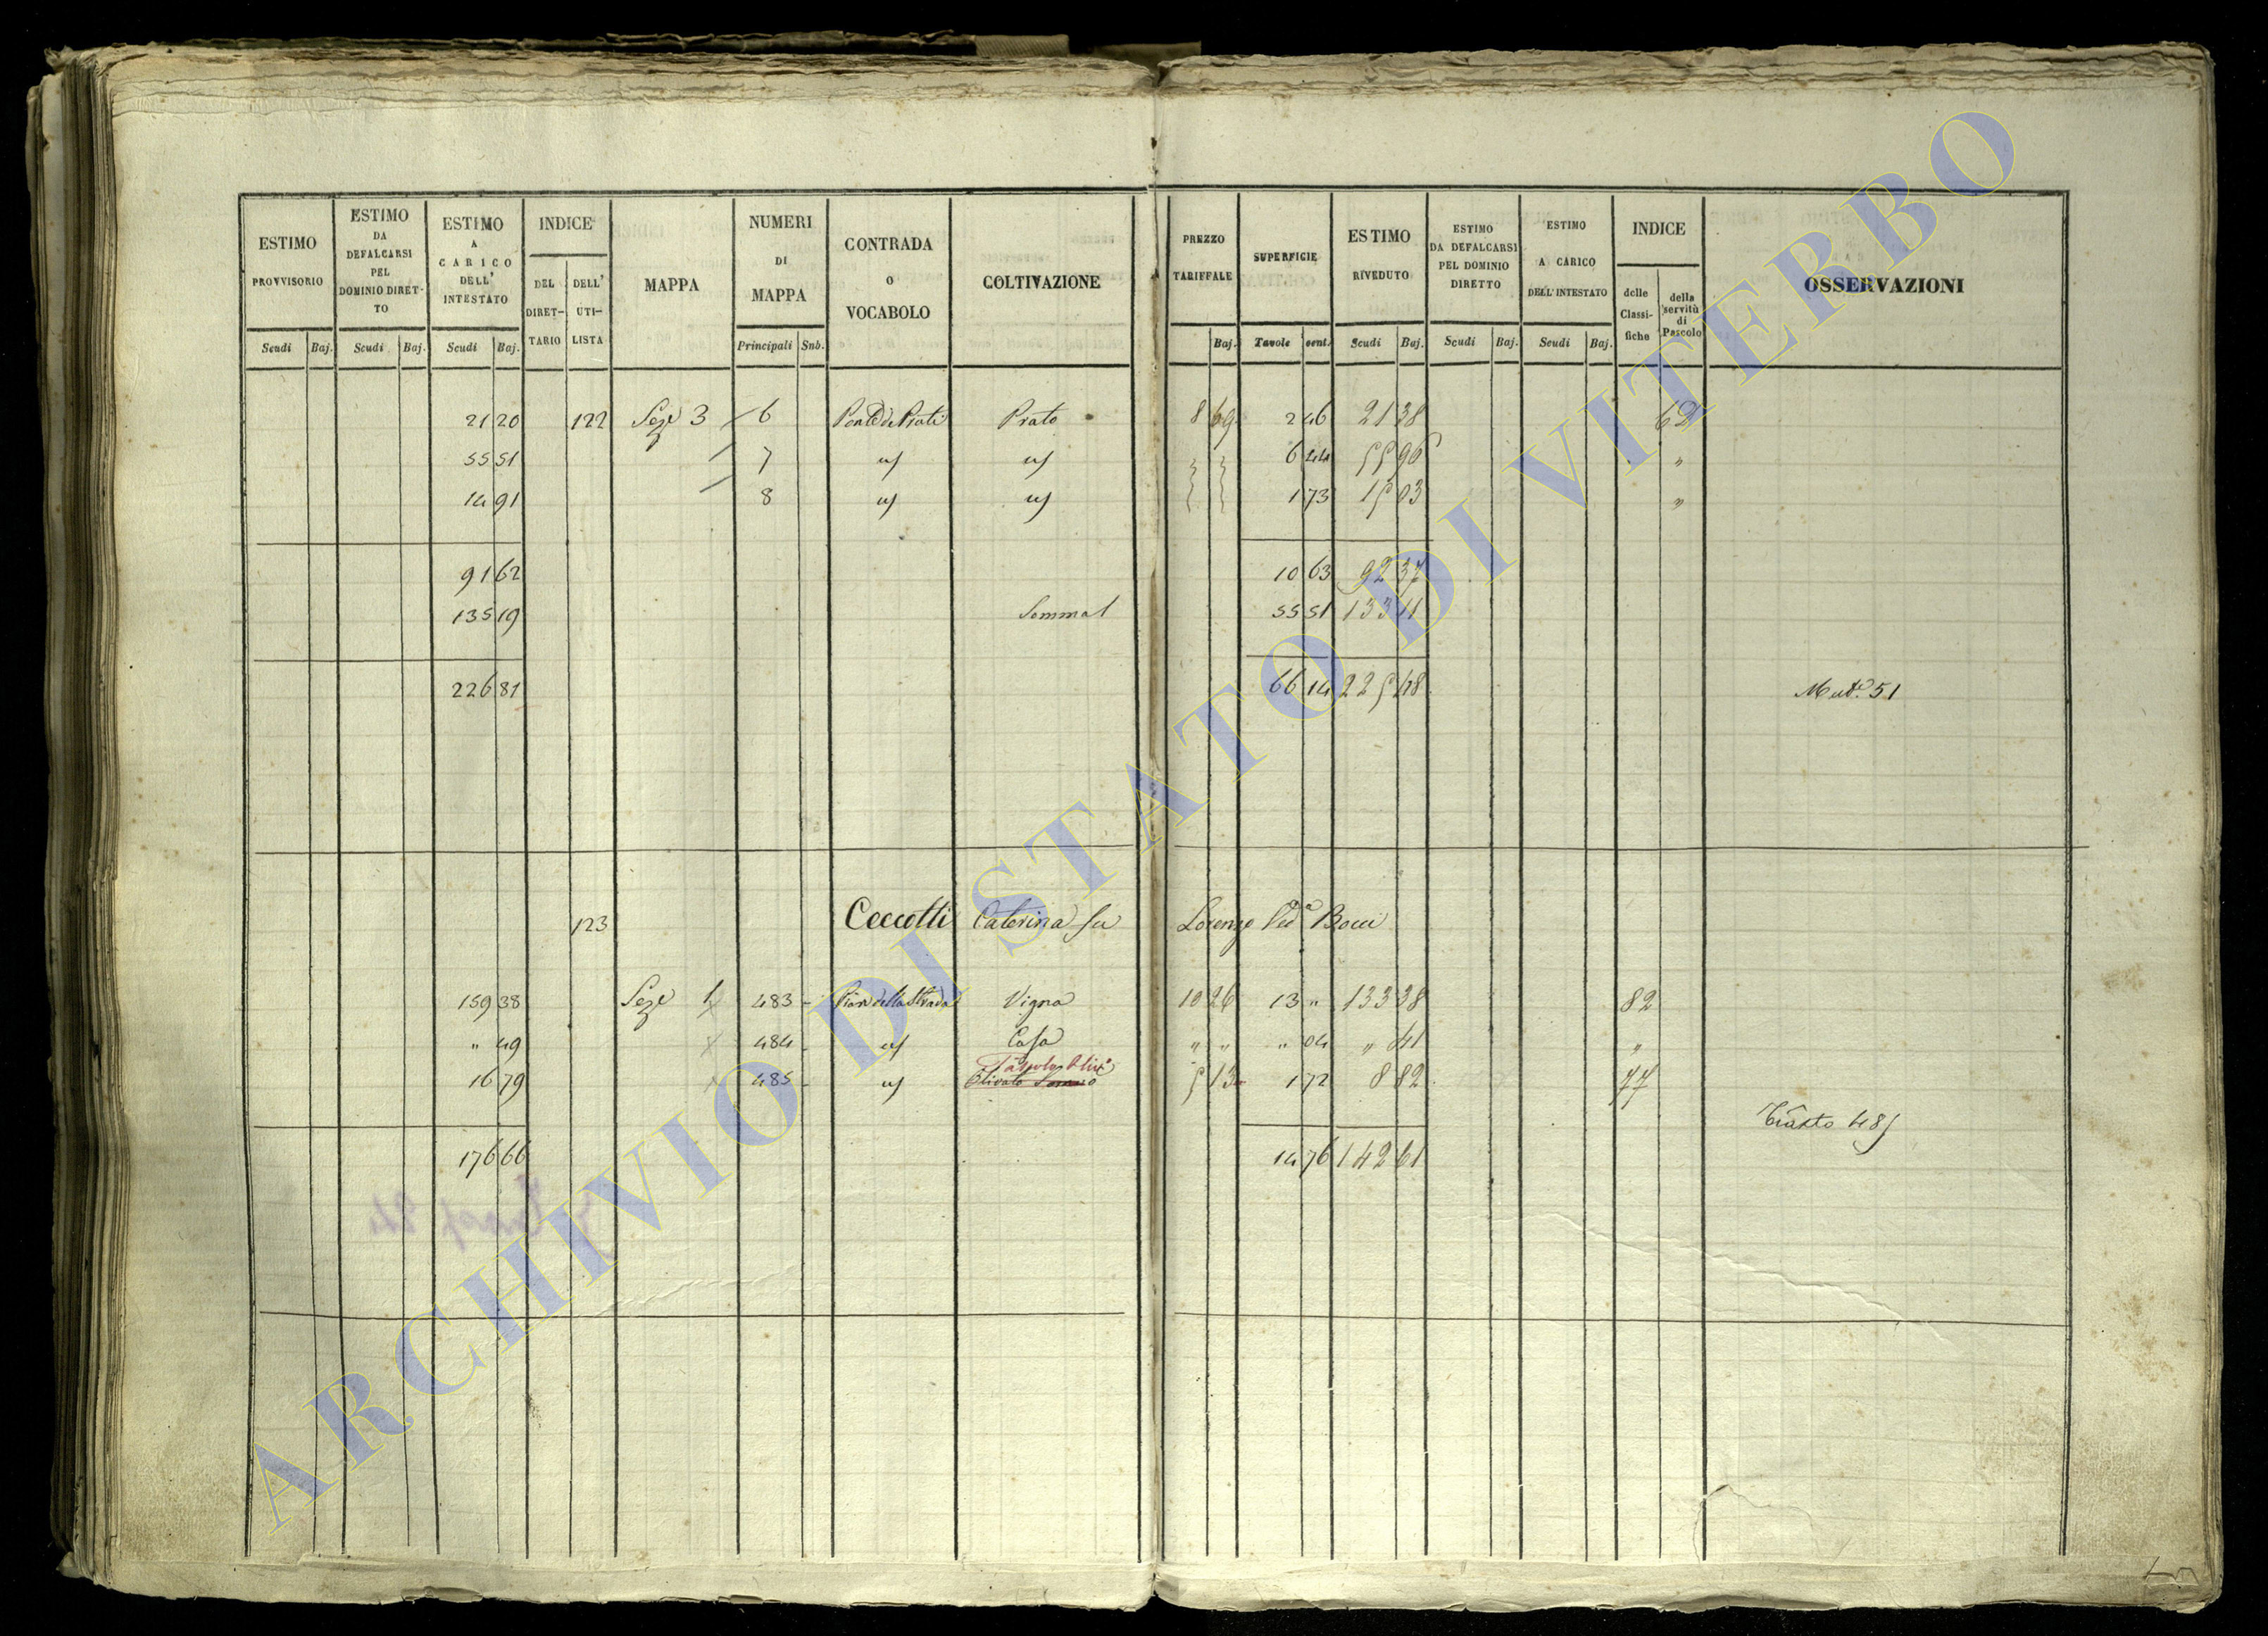 ESTIMO PROVVISORIO
ESTIMO DA DEFALCARSI PEL DOMINIO DIRET-TO
ESTIMO A CARICO DELL' INTESTATO
INDICE
DEL DIRET-TARIO
DELL' UTI-LISTA
MAPPA
NUMERI DI MAPPA
CONTRADA O VOCABOLO
COLTIVAZIONE
PREZZO TARIFFALE
SUPERFICIE
ESTIMO RIVEDUTO
ESTIMO DA DEFALCARSI PEL DOMINIO DIRETTO
ESTIMO A CARICO DELL'INTESTATO
INDICE
delle Classi-fiche
della servitù di Pascolo
OSSERVAZIONI
Scudi Baj. Scudi Baj. Scudi Baj. Principali Sub. Baj. Tavole cent. Scudi Baj. Scudi Baj. Scudi Baj.
21 20 122 Seze 3 6 Ponte de Prati Prato 8 69 2 46 21 38 62
55 51 7 us us 6 44 55 96 "
14 91 8 us us 1 73 15 03 "
91 62 10 63 92 37
135 19 Somma 55 51 133 11
226 81 66 14 225 48 Mut.e 51
123 Ceccotti Caterina fu Lorenzo Ved.a Bocci
159 38 Seze 1 483 Piano della Strada Vigna 10 26 13 " 133 38 82
" 49 484 us Casa " " " 04 " 41 "
16 79 485 us Olivato 5 13 1 72 8 82 77
485
176 66 14 76 142 61
ARCHIVIO DI STATO DI VITERBO